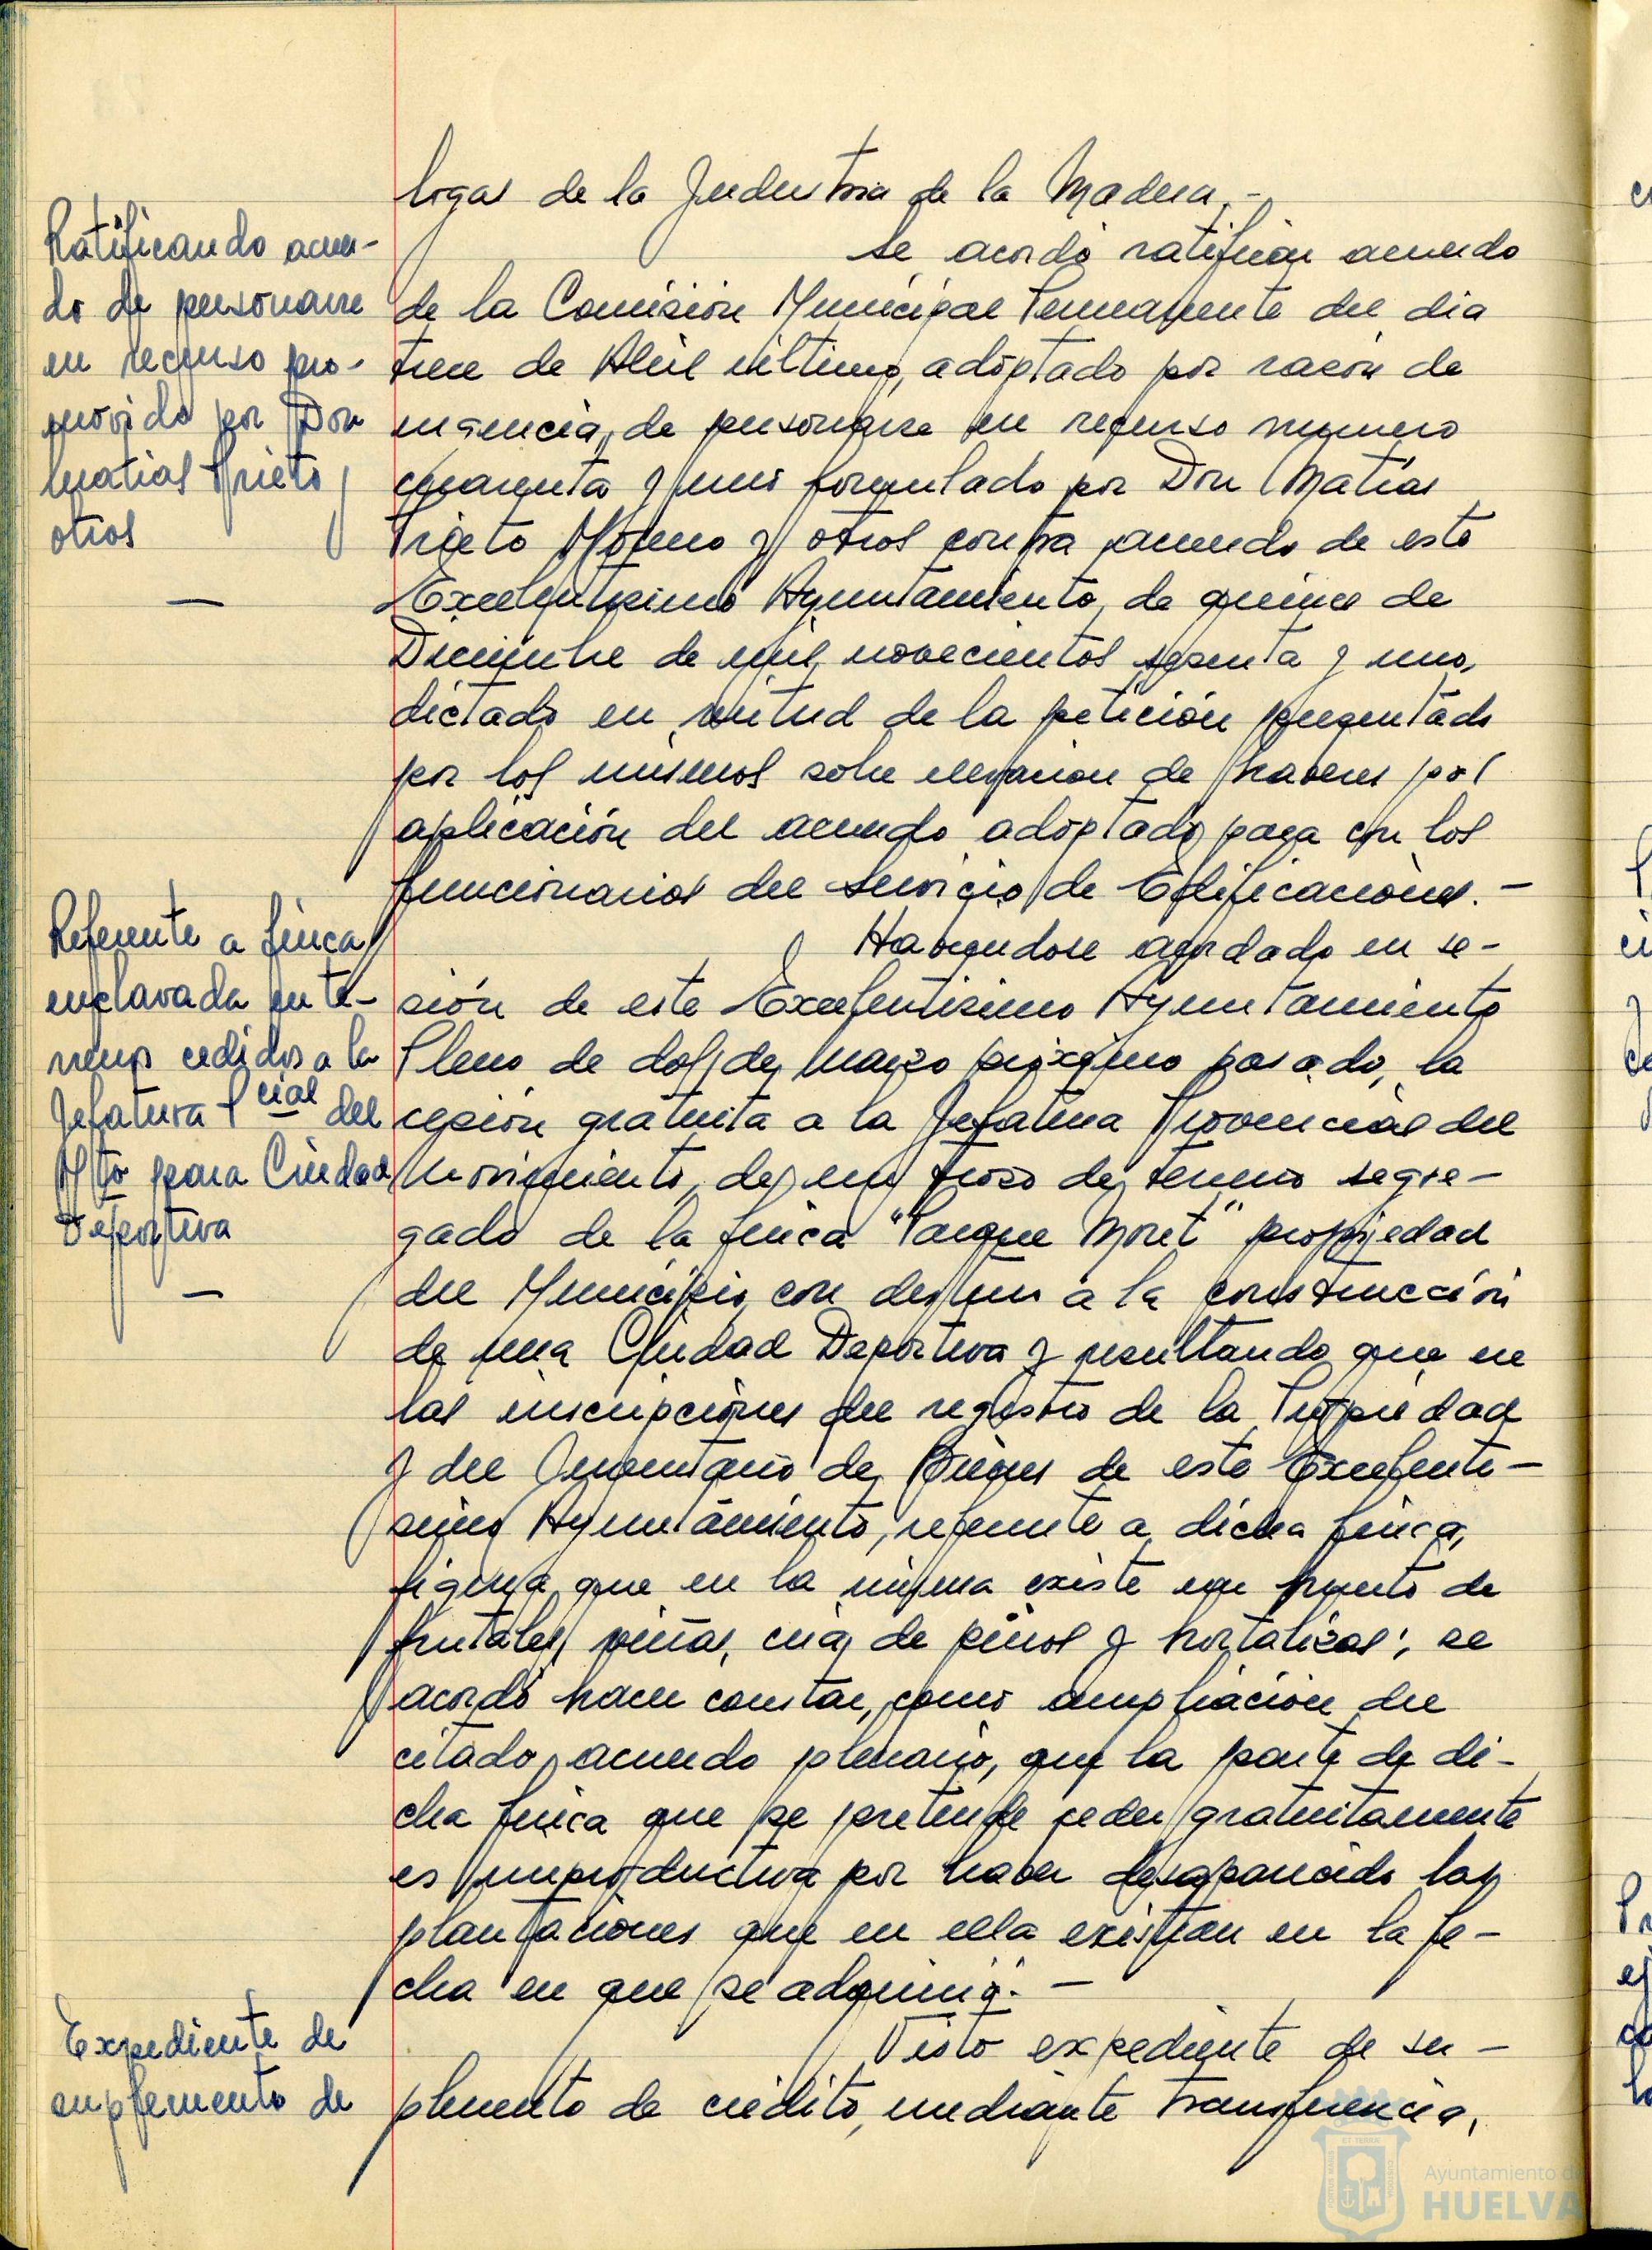 logas de la Industria de la Madera.-
Ratificando acuer-
do de personarse
en recurso pro-
movido por Don
Matias Prieto y
otros
Se acordó ratificar acuerdo
de la Comisión Municipal Permanente del dia
trece de Abril último, adoptado por razón de
urgencia, de personarse en recurso numero
cuarenta y uno formulado por Don Matías
Prieto Moreno y otros contra acuerdo de este
Excelentísimo Ayuntamiento, de quince de
Diciembre de mil novecientos sesenta y uno,
dictado en virtud de la petición presentada
por los mismos sobre elevacion de haberes por
aplicación del acuerdo adoptado para con los
funcionarios del Servicio de Edificaciones.-
Referente a finca
enclavada en te-
rrenos cedidos a la
Jefatura Pcial del
Mto para Ciudad
Deportiva
Habiendose acordado en se-
sión de este Excelentisimo Ayuntamiento
Pleno de dos de Marzo próximo pasado, la
cesión gratuita a la Jefatura Provincial del
Movimiento, de un trozo de terreno segre-
gado de la finca "Parque Moret" propiedad
del Municipio, con destino a la construcción
de una Ciudad Deportiva y resultando que en
las inscripciones del registro de la Propiedad
y del Inventario de Bienes de este Excelentí-
simo Ayuntamiento, referente a dicha finca,
figura que en la misma existe un huerto de
frutales, viñas, cria de pinos y hortalizas; se
acordó hacer constar, como ampliación del
citado acuerdo plenario, que la parte de di-
cha finca que se pretende ceder gratuitamente
es improductiva por haber desaparecido las
plantaciones que en ella existian en la fe-
cha en que se adquirió.-
Expediente de
suplemento de
Visto expediente de su-
plemento de crédito, mediante transferencia,
Ayuntamiento de
HUELVA